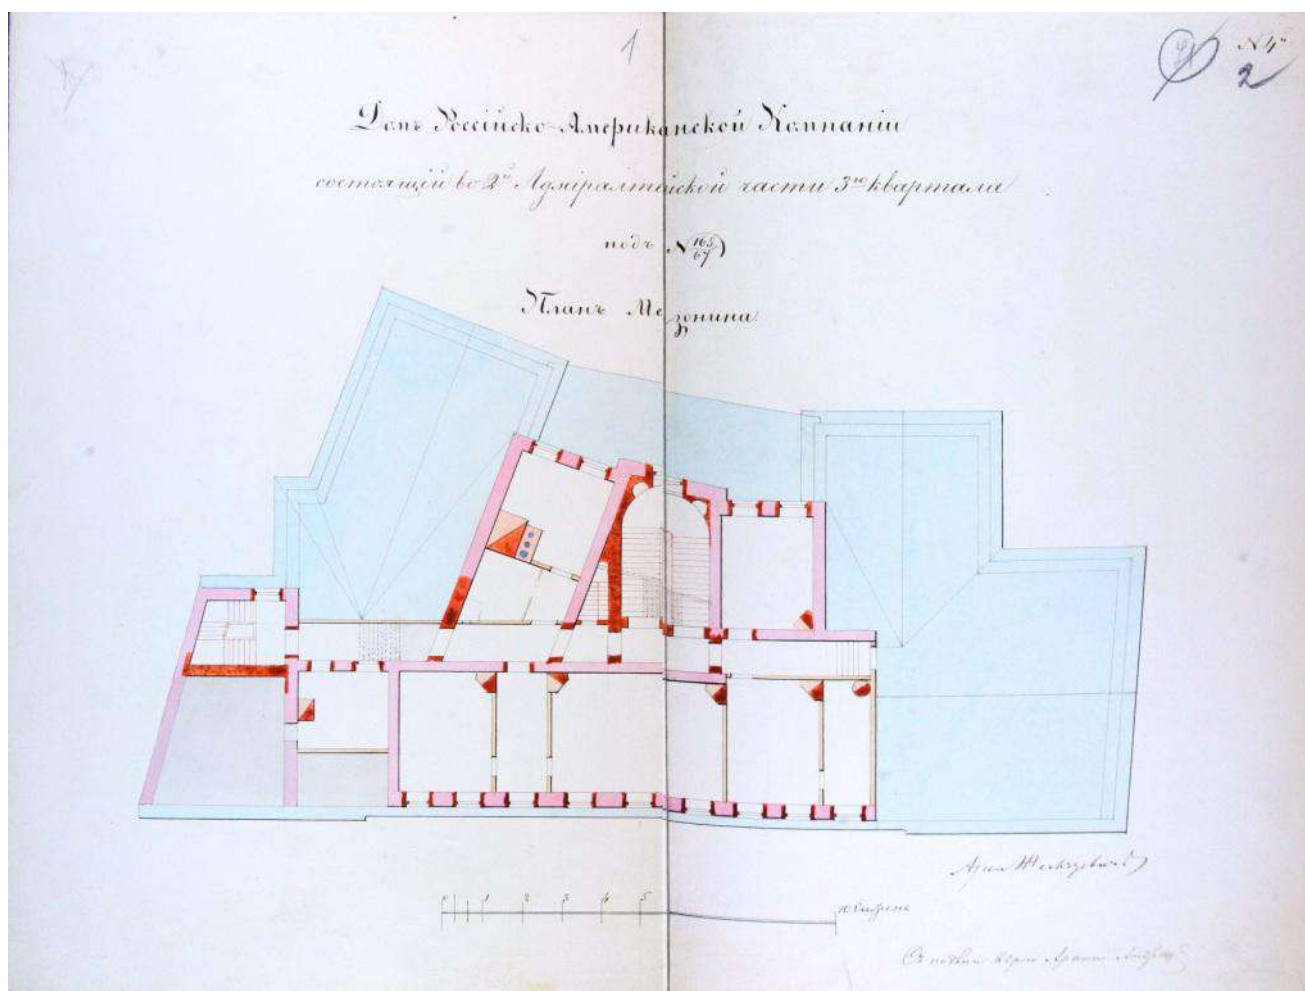 1
N 4ⁿ
2
Домъ Россійско-Американской Компаніи
состоящій во 2ᵘ Адміралтейской части 3ᵍᵒ квартала
подъ N 165/67
Планъ Мезонина
0 1 2 3 4 5 10 Саженъ
Съ подлин верно Архит